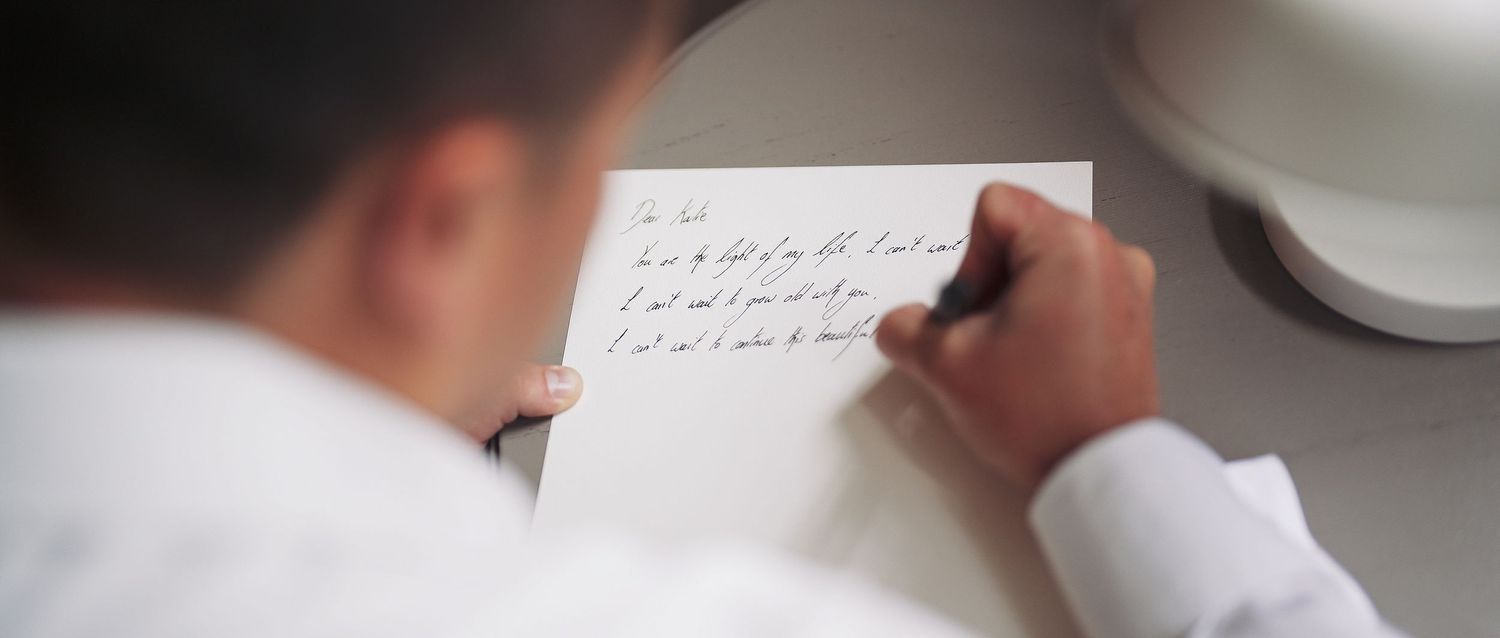 Dear Katie
You are the light of my life. I can't wait
I can't wait to grow old with you.
I can't wait to continue this beautiful